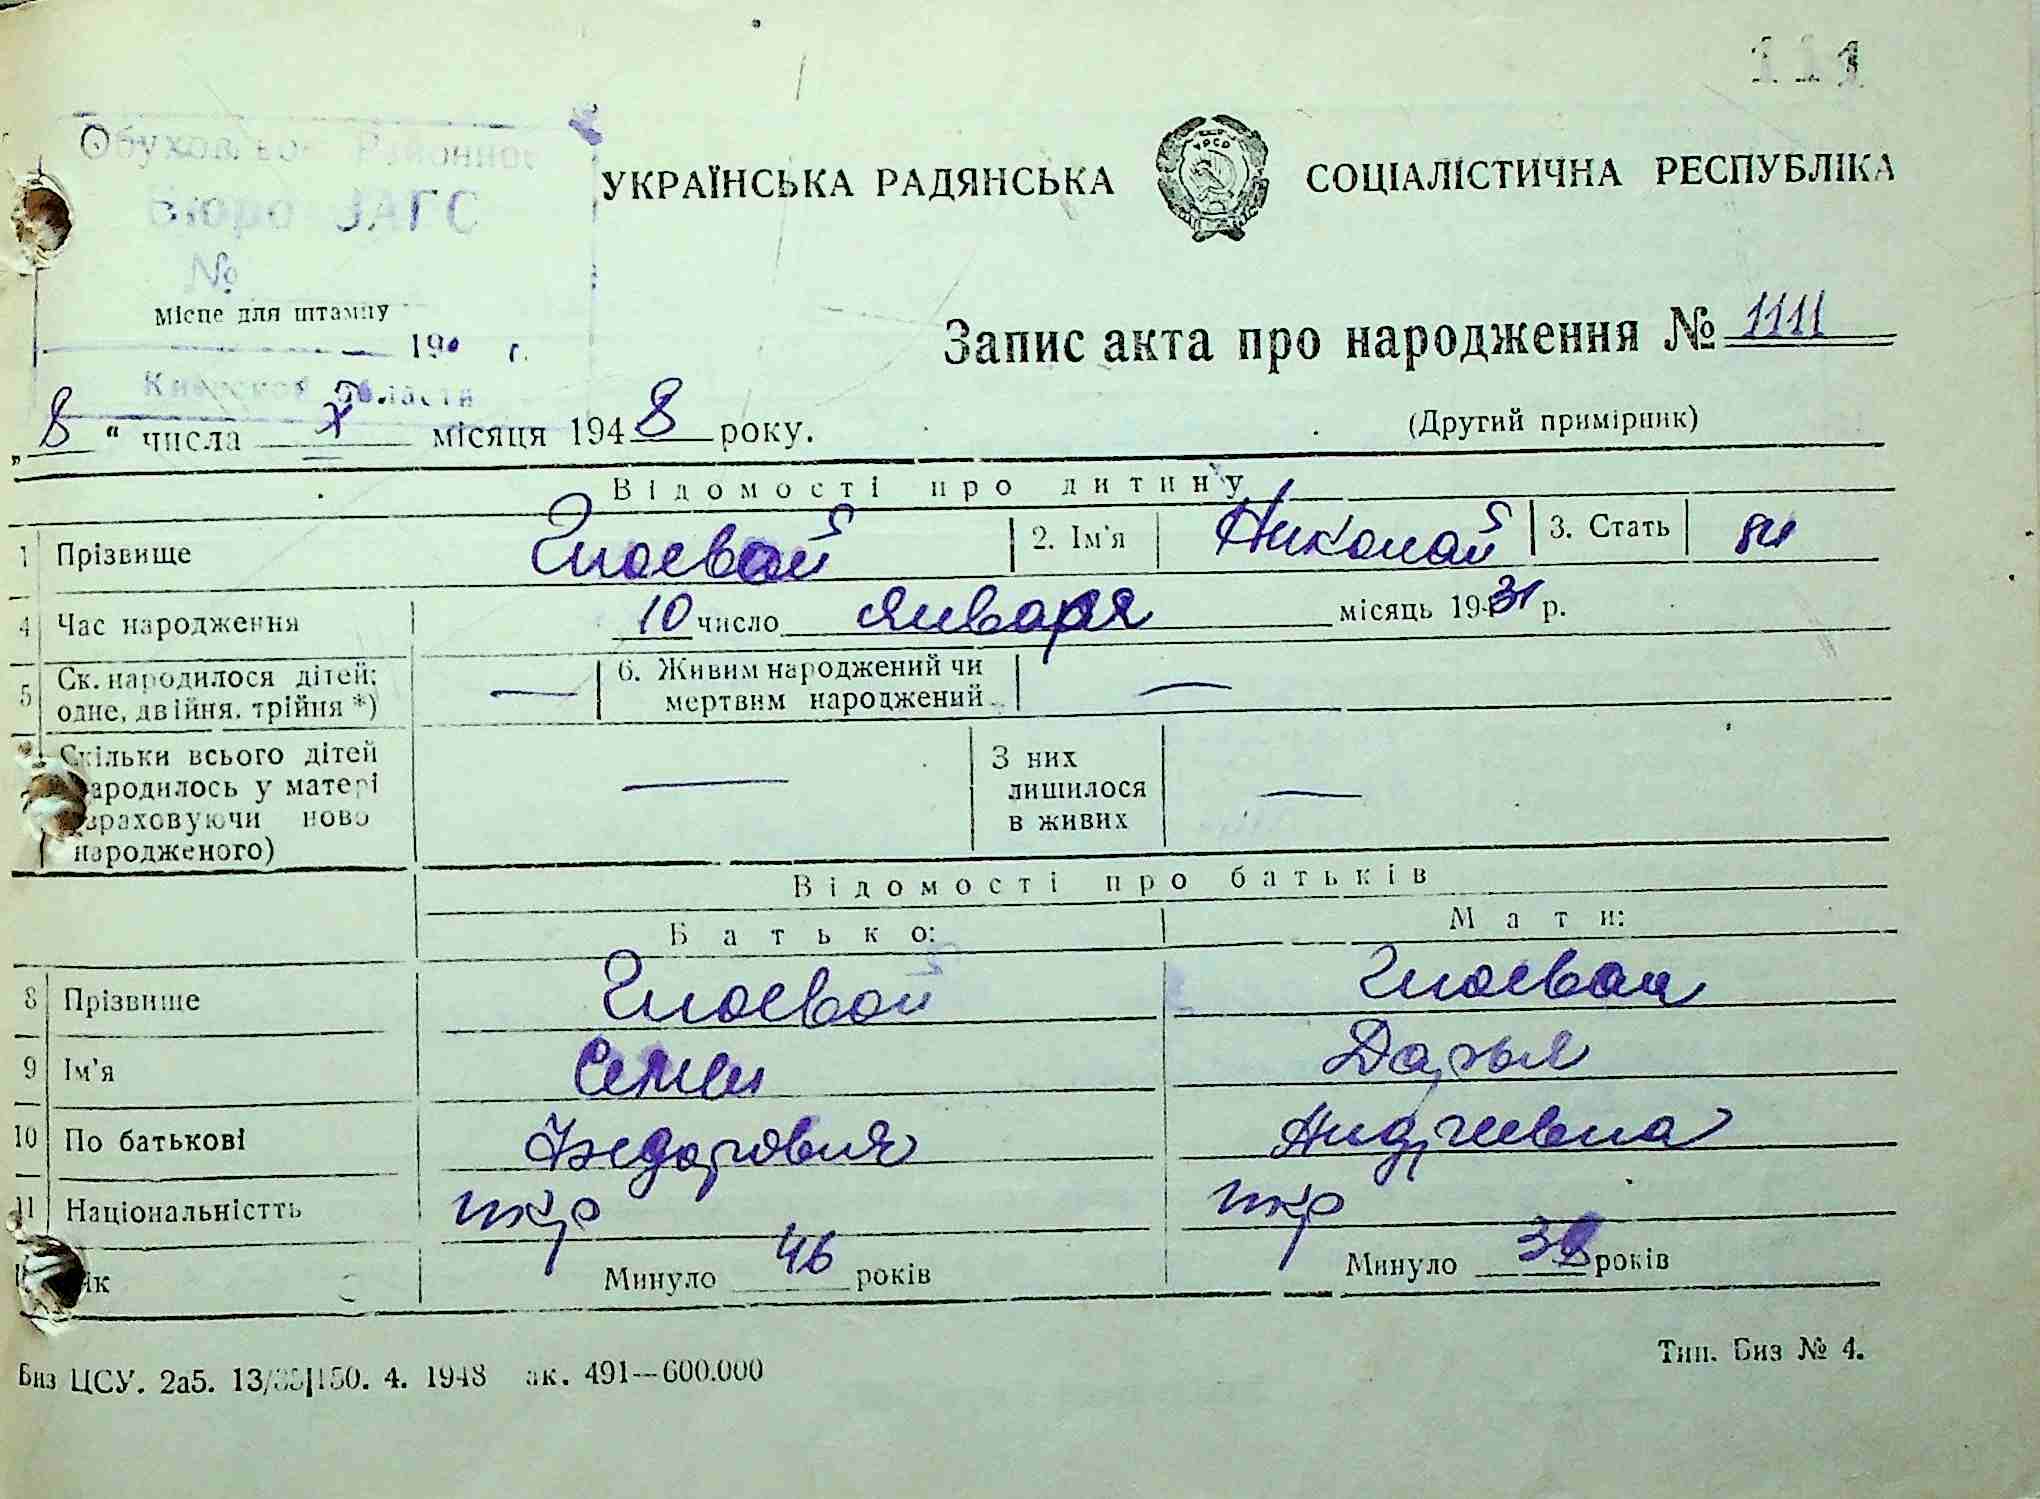 111
Обухов Районное
Бюро ЗАГС
№
УКРАЇНСЬКА РАДЯНСЬКА СОЦІАЛІСТИЧНА РЕСПУБЛІКА
Місце для штампу
19 г.
Киевской области
Запис акта про народження № 1111
(Другий примірник)
„8" числа X місяця 1948 року.
Відомості про дитину
1 Прізвище Гноевой 2. Ім'я Николай 3. Стать м
4 Час народження 10 число января місяць 1931 р.
5 Ск. народилося дітей: одне, двійня, трійня *) — 6. Живим народжений чи мертвим народжений —
Скільки всього дітей народилось у матері враховуючи ново народженого) — З них лишилося в живих —
Відомості про батьків
Батько: Мати:
8 Прізвище Гноевой Гноевая
9 Ім'я Семен Дарья
10 По батькові Федорович Андреевна
11 Національністть укр укр
Вік Минуло 46 років Минуло 38 років
Биз ЦСУ. 2а5. 13/ 150. 4. 1948 ак. 491—600.000
Тип. Биз № 4.